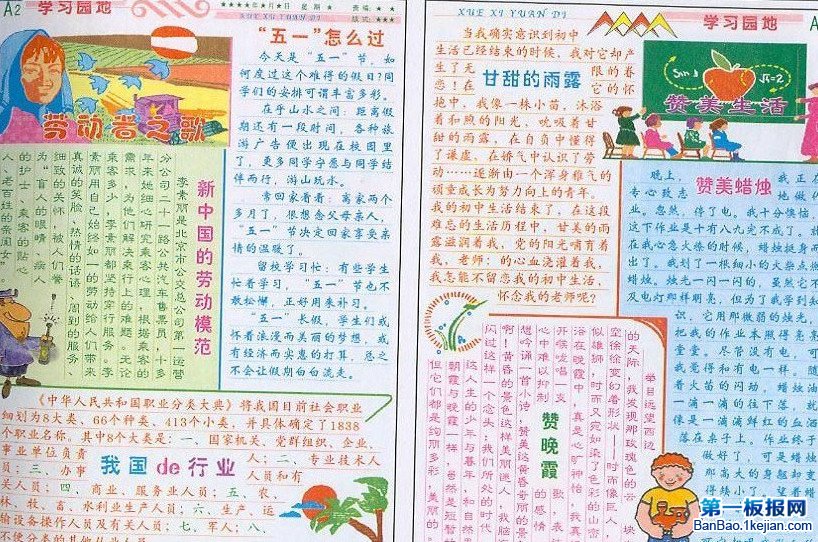 A2 学习园地
★★★★年★月★日 星期★ 责编:★★
XUE XI YUAN DI 版式:★★★
劳动者之歌
“五一”怎么过
今天是“五一”节,如
何度过这个难得的假日?同
学们的安排可谓丰富多彩。
在乎山水之间:距离假
期还有一段时间,各种旅
游广告便出现在校园里
了,更多同学宁愿与同学结
伴而行,游山玩水。
常回家看看:离家两个
多月了,很想念父母亲人,
“五一”节决定回家享受亲
情的温暖了。
留校学习忙:有些学生
忙着学习,“五一”节也不
敢松懈,正好用来补习。
“五一”长假,学生们或
怀着浪漫而美丽的梦想,或
有经济而实惠的打算,总之
不会让假期白白流走。
新中国的劳动模范
李素丽是北京市公交总公司第一运营
分公司二十一路公共汽车售票员,十多
年来她细心研究乘客心理,根据乘客的
需求,为他们解决乘行上的难题。无论
乘客多少,李素丽都坚持四行服务,李
素丽用自己始终如一的劳动给人们带来
真诚的笑脸、热情的话语、周到的服务、
细致的关怀,被人们誉
为“盲人的眼睛、病人
的护士、乘客的贴心
人、老百姓的亲闺女”
《中华人民共和国职业分类大典》将我国目前社会职业
细划为8大类、66个种类、413个小类,并具体确定了1838
个职业名称。其中8个大类是:一、国家机关、党群组织、企业、
事业单位负责人;二、专业技术人
员;三、办事人员和有
关人员;四、商业、服务业人员;五、农、
林、牧、畜、水利业生产人员;六、生产、运
输设备操作人员及有关人员;七、军人;八、
不便分类的其他从业人员
我国de行业
XUE XI YUAN DI 学习园地 A
当我确实意识到初中
生活已经结束的时候,我对它却产
生了无限的眷
恋!在它的怀
抱中,我像一株小苗,沐浴
着和煦的阳光,吮吸着甘
甜的雨露,在自负中懂得
了谦虚,在娇气中认识了劳
动……逐渐由一个浑身稚气的
顽童成长为努力向上的青年。
我的初中生活结束了,在这段
难忘的生活历程中,甘美的雨
露滋润着我,党的阳光哺育着
我,老师:的心血浇灌着我,
我怎能不留恋我的初中生活,
怀念我的老师呢?
甘甜的雨露
Sin
√π=2
赞美生活
赞美蜡烛
晚上,我正在
专心致志地做作
业。忽然,停了电。我十分懊恼,
这下作业是十有八九完不成了。就
在我心急火燎的时候,蜡烛挺身而
出了。我划了一根细小的火柴点燃
蜡烛。烛光一闪一闪的,虽然它不
及电灯那样明亮,但为了我学到知
识,它用那微弱的烛光,
把我的作业本照得亮亮
堂堂。尽管没有电,可
我觉得和有电一样。随
着火苗的闪动,蜡烛油
一滴一滴的往下落,就
像是一滴滴鲜红的血洒
落在桌子上。作业终于
做好了,可是蜡烛
那高大的身躯却变
得矮小了。望着蜡
赞晚霞
举目远望西边
的天际,我发现那玫瑰色的云块
空徐徐变幻着形状——时而像巨人,
似雄狮,时而又宛如染了色彩的山峦
浴在晚霞中,真是心旷神怡,我真
开喉咙唱一支歌,表
心中难以抑制的感情
想吟诵一首小诗,赞美这黄昏奇丽的景
啊!黄昏的景色这样美丽迷人,我脑
闪过这样一个念头:我们所处的时代
这人生的少年与暮年,和自然界
朝霞与晚霞一样,虽然是短暂
但它们都是绚丽多彩,美丽的。
第一板报网
BanBao.1kejian.com